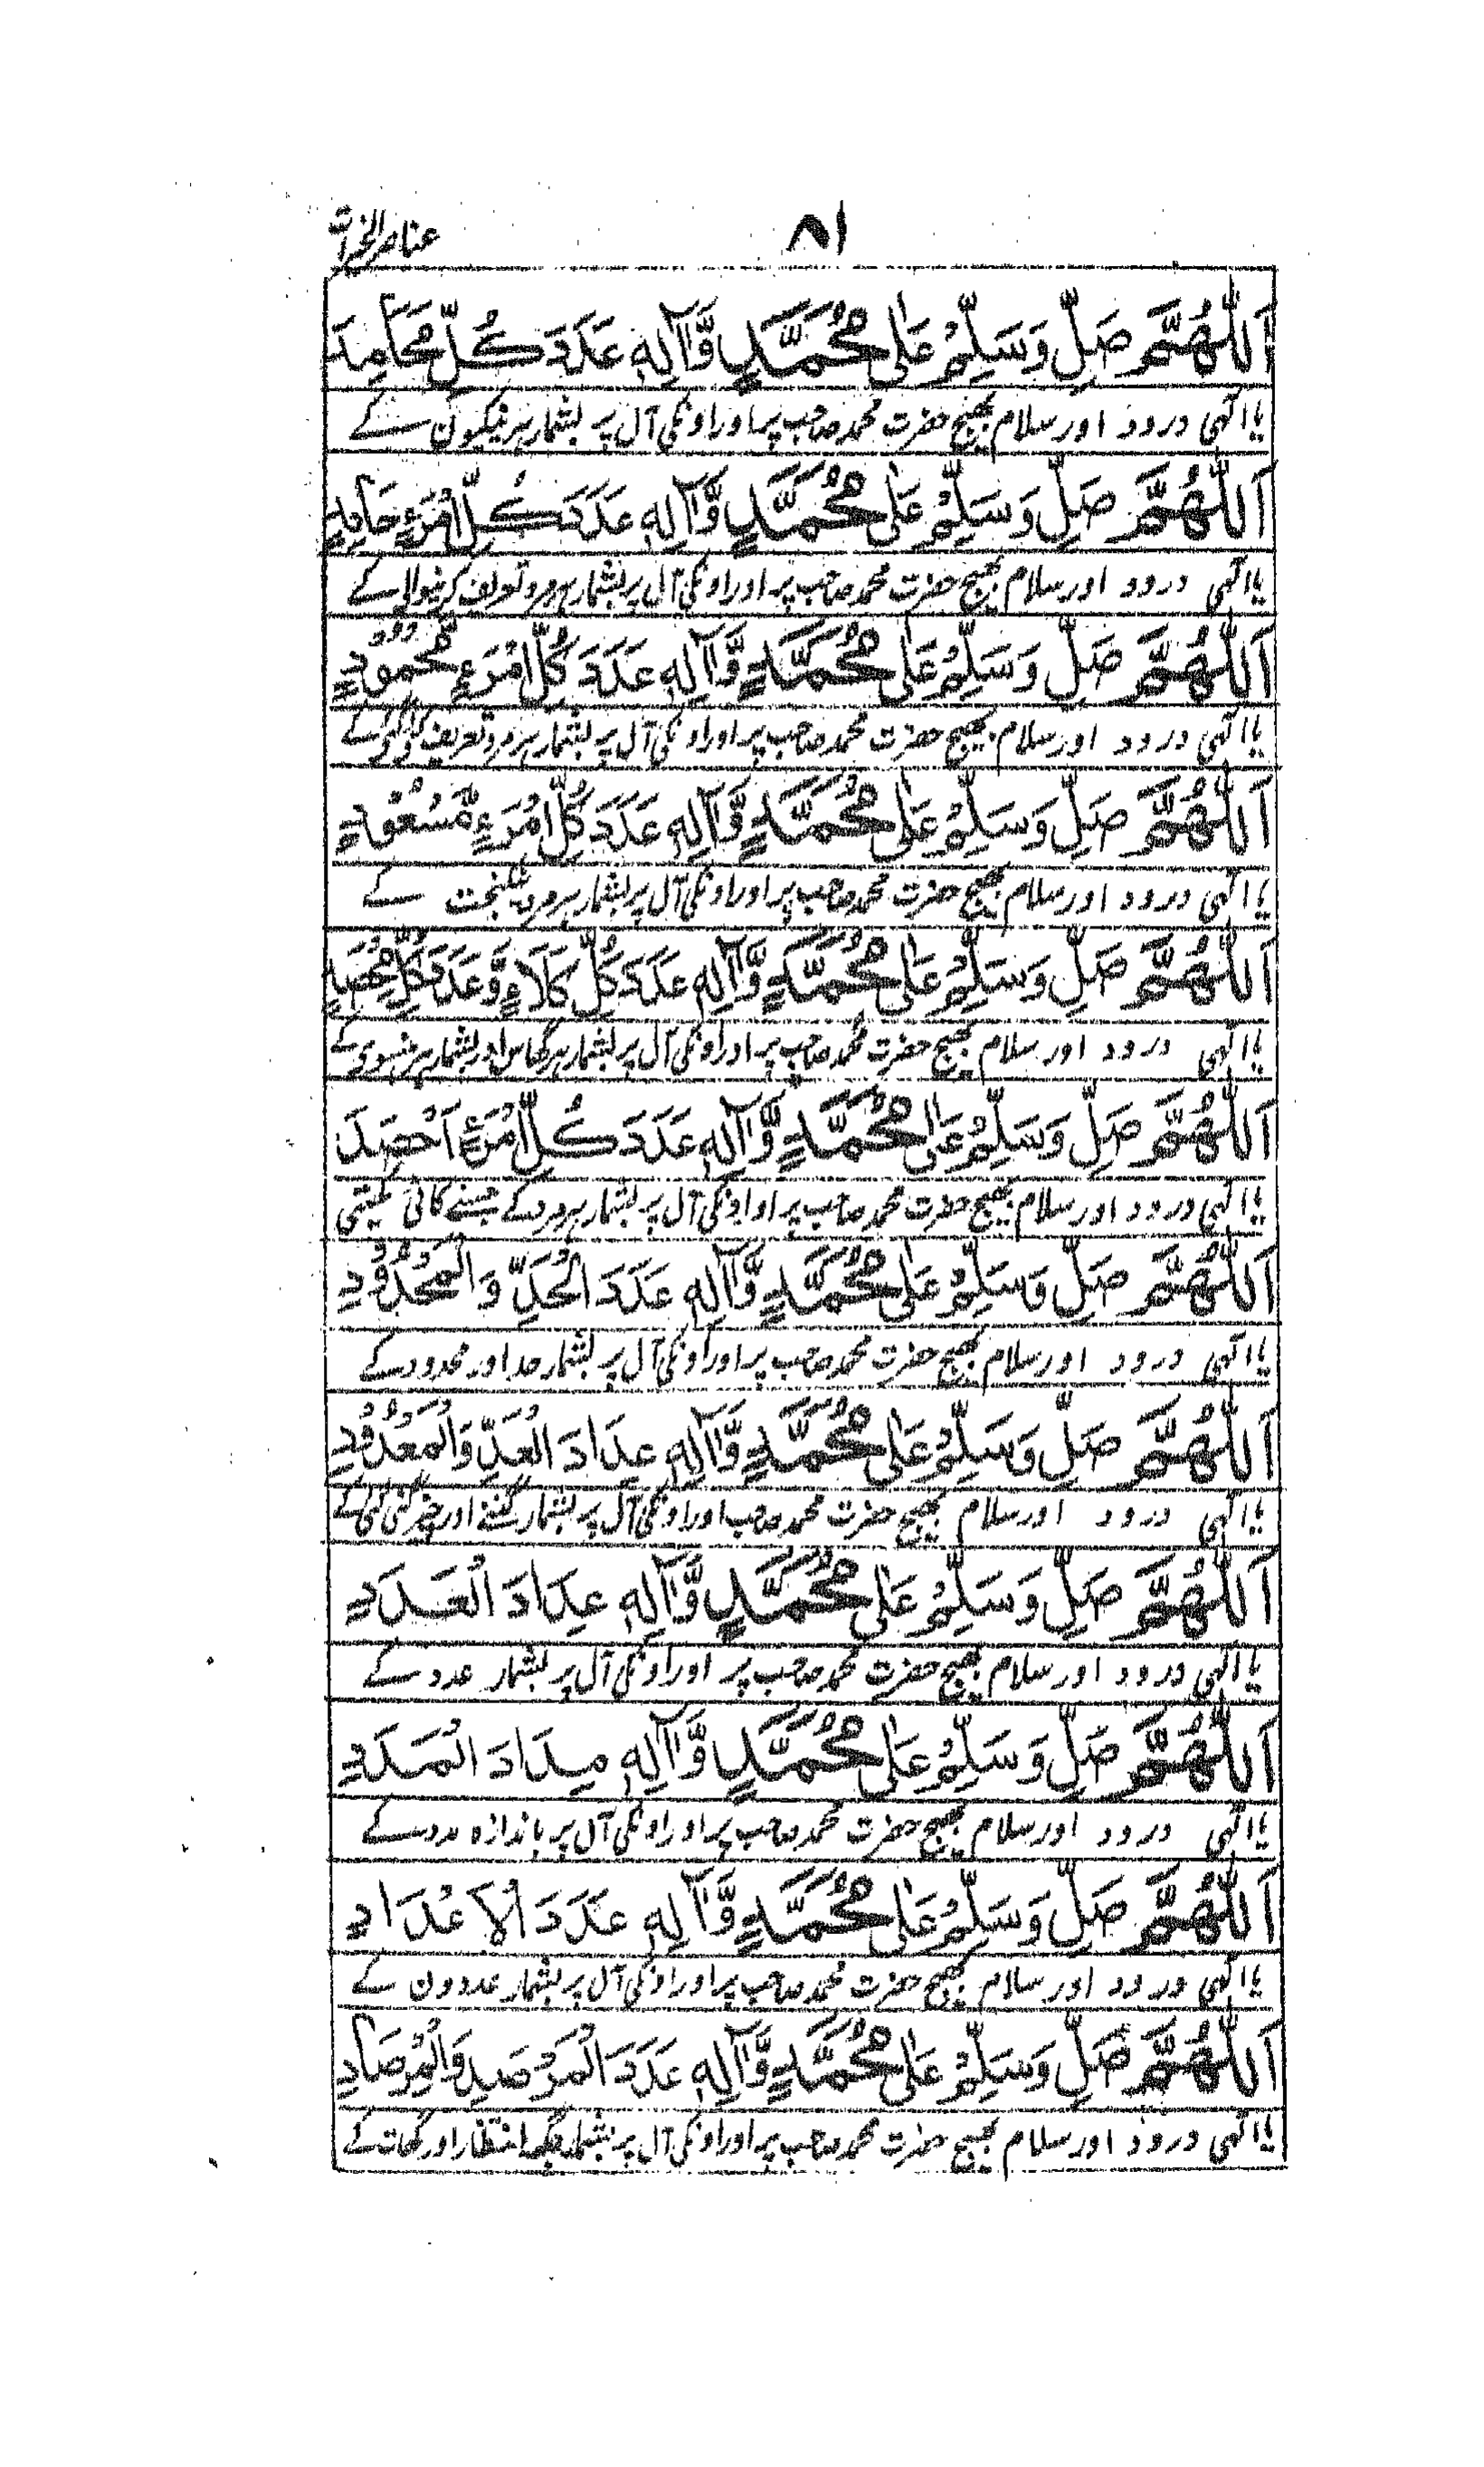 ٨١ عناصر الخیرات
اَللّٰهُمَّ صَلِّ وَسَلِّمْ عَلٰى مُحَمَّدٍ وَّاٰلِهٖ عَدَدَ كُلِّ مَحَامِدَ
یا الٰہی درود اور سلام بھیج حضرت محمد صاحب پر اور اونکی آل پر بشمار ہر نیکیون کے
اَللّٰهُمَّ صَلِّ وَسَلِّمْ عَلٰى مُحَمَّدٍ وَّاٰلِهٖ عَدَدَ كُلِّ امْرَءٍ حَامِدٍ
یا الٰہی درود اور سلام بھیج حضرت محمد صاحب پر اور اونکی آل پر بشمار ہر مرد تعریف کرنیوالے کے
اَللّٰهُمَّ صَلِّ وَسَلِّمْ عَلٰى مُحَمَّدٍ وَّاٰلِهٖ عَدَدَ كُلِّ امْرَءٍ مَّحْمُوْدٍ
یا الٰہی درود اور سلام بھیج حضرت محمد صاحب پر اور اونکی آل پر بشمار ہر مرد تعریف کے
اَللّٰهُمَّ صَلِّ وَسَلِّمْ عَلٰى مُحَمَّدٍ وَّاٰلِهٖ عَدَدَ كُلِّ امْرَءٍ مَّسْعُوْدٍ
یا الٰہی درود اور سلام بھیج حضرت محمد صاحب پر اور اونکی آل پر بشمار ہر مرد نیکبخت کے
اَللّٰهُمَّ صَلِّ وَسَلِّمْ عَلٰى مُحَمَّدٍ وَّاٰلِهٖ عَدَدَ كُلِّ كَلَاءٍ وَّعَدَدَ كُلِّ
یا الٰہی درود اور سلام بھیج حضرت محمد صاحب پر اور اونکی آل پر بشمار ہر گھاس اور بشمار ہر کے
اَللّٰهُمَّ صَلِّ وَسَلِّمْ عَلٰى مُحَمَّدٍ وَّاٰلِهٖ عَدَدَ كُلِّ امْرَءٍ اَحْصَدَ
یا الٰہی درود اور سلام بھیج حضرت محمد صاحب پر اور اونکی آل پر بشمار ہر مرد کے جسنے کاٹی کھیتی
اَللّٰهُمَّ صَلِّ وَسَلِّمْ عَلٰى مُحَمَّدٍ وَّاٰلِهٖ عَدَدَ الْحَدِّ وَالْمَحْدُوْدِ
یا الٰہی درود اور سلام بھیج حضرت محمد صاحب پر اور اونکی آل پر بشمار حد اور محدود کے
اَللّٰهُمَّ صَلِّ وَسَلِّمْ عَلٰى مُحَمَّدٍ وَّاٰلِهٖ عِدَادَ الْعَدِّ وَالْمَعْدُوْدِ
یا الٰہی درود اور سلام بھیج حضرت محمد صاحب اور اونکی آل پر بشمار گننے اور چیز گنی گئی کے
اَللّٰهُمَّ صَلِّ وَسَلِّمْ عَلٰى مُحَمَّدٍ وَّاٰلِهٖ عِدَادَ الْعَدَدِ
یا الٰہی درود اور سلام بھیج حضرت محمد صاحب پر اور اونکی آل پر بشمار عدد کے
اَللّٰهُمَّ صَلِّ وَسَلِّمْ عَلٰى مُحَمَّدٍ وَّاٰلِهٖ مِدَادَ الْمَدَدِ
یا الٰہی درود اور سلام بھیج حضرت محمد صاحب پر اور اونکی آل پر باندازہ مدد کے
اَللّٰهُمَّ صَلِّ وَسَلِّمْ عَلٰى مُحَمَّدٍ وَّاٰلِهٖ عَدَدَ الْاَعْدَادِ
یا الٰہی درود اور سلام بھیج حضرت محمد صاحب پر اور اونکی آل پر بشمار عددون کے
اَللّٰهُمَّ صَلِّ وَسَلِّمْ عَلٰى مُحَمَّدٍ وَّاٰلِهٖ عَدَدَ الْمَرْصَدِ وَالْمِرْصَادِ
یا الٰہی درود اور سلام بھیج حضرت محمد صاحب پر اور اونکی آل پر بشمار جگہ انتظار اور گھات کے